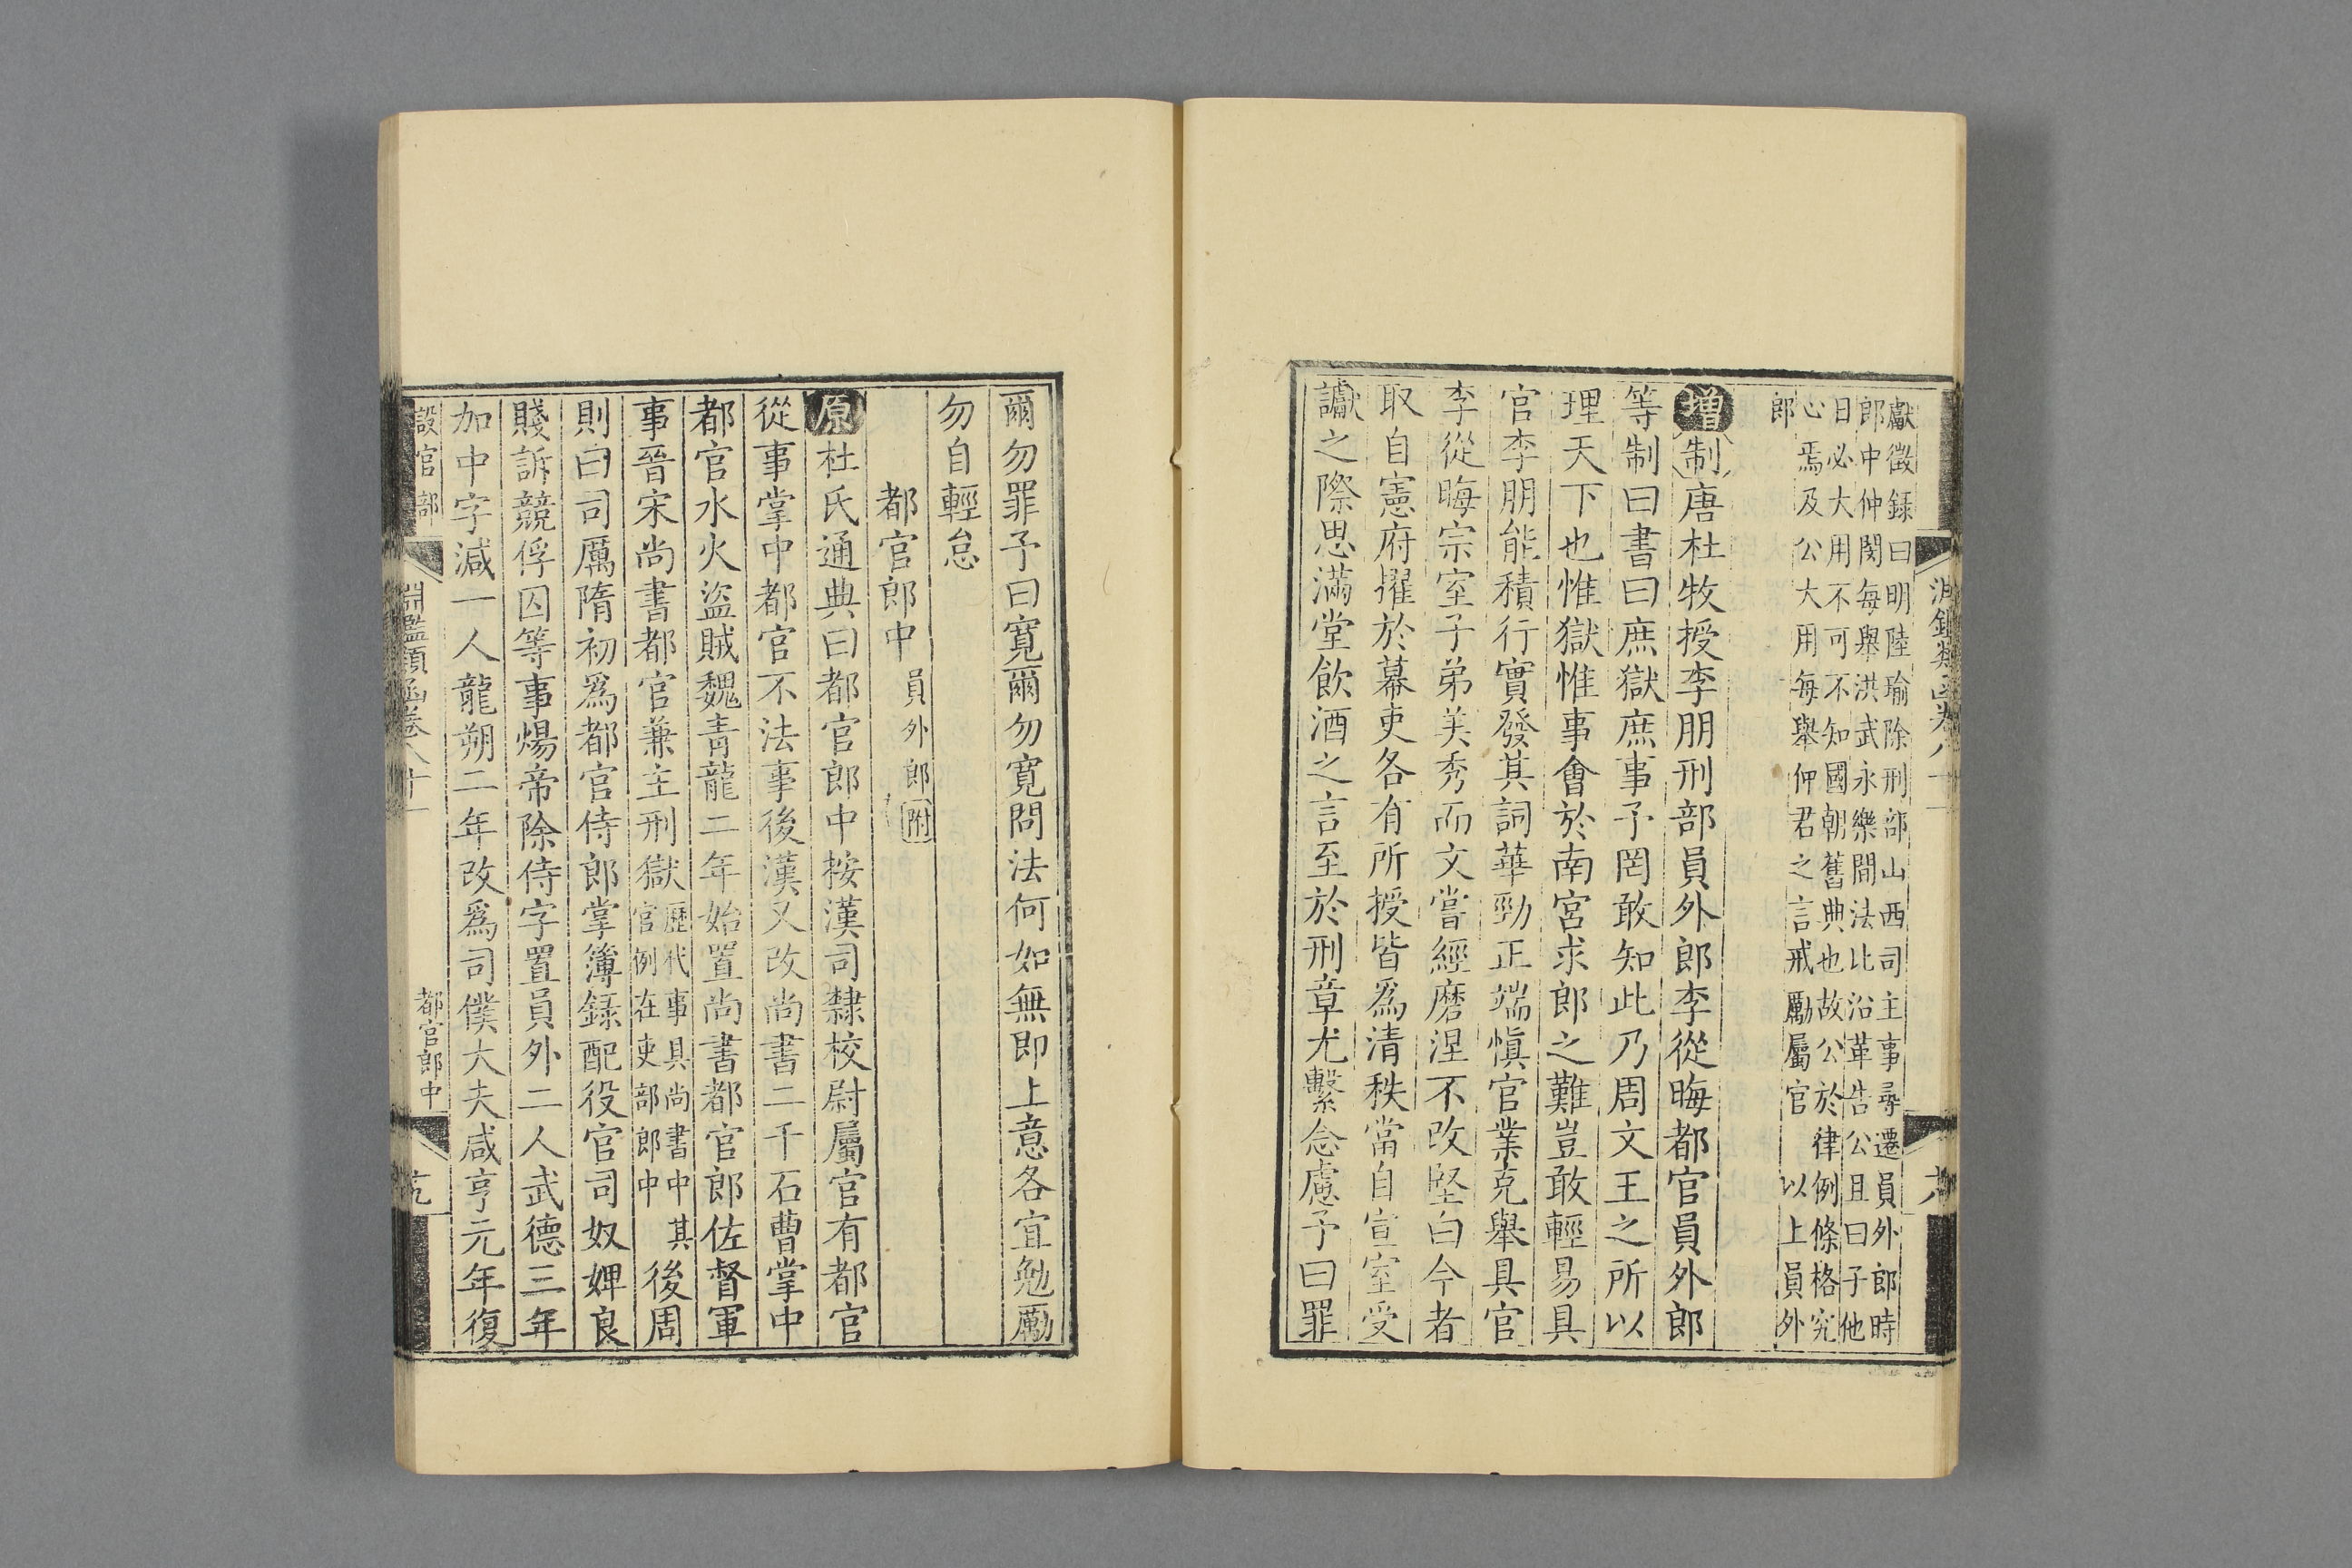 淵鑑類函卷八十一
獻徵錄曰明陸瑜除刑部山西司主事尋遷員外郎時
郎中仲閔每舉洪武永樂間法比沿革告公且曰子他
日必大用不可不知國朝舊典也故公於律例條格究
心焉及公大用每舉仲君之言戒勵屬官 以上員外
郎
增制唐杜牧授李朋刑部員外郎李從晦都官員外郎
等制曰書曰庶獄庶事予罔敢知此乃周文王之所以
理天下也惟獄惟事會於南宮求郎之難豈敢輕易具
官李朋能積行實發其詞華勁正端愼官業克舉具官
李從晦宗室子弟美秀而文嘗經磨涅不改堅白今者
取自憲府擢於幕吏各有所授皆爲清秩當自宣室受
讞之際思滿堂飮酒之言至於刑章尤繫念慮予曰罪
爾勿罪予曰寬爾勿寬問法何如無即上意各宜勉勵
勿自輕怠
都官郎中 員外郎附
原杜氏通典曰都官郎中按漢司隸校尉屬官有都官
從事掌中都官不法事後漢又改尚書二千石曹掌中
都官水火盜賊魏青龍二年始置尚書都官郎佐督軍
事晉宋尚書都官兼主刑獄歷代事具尚書中其
官例在吏部郎中後周
則曰司厲隋初爲都官侍郎掌簿錄配役官司奴婢良
賤訴競俘囚等事煬帝除侍字置員外二人武德三年
加中字減一人龍朔二年改爲司僕大夫咸亨元年復
設官部
淵鑑類函卷八十一
都官郎中